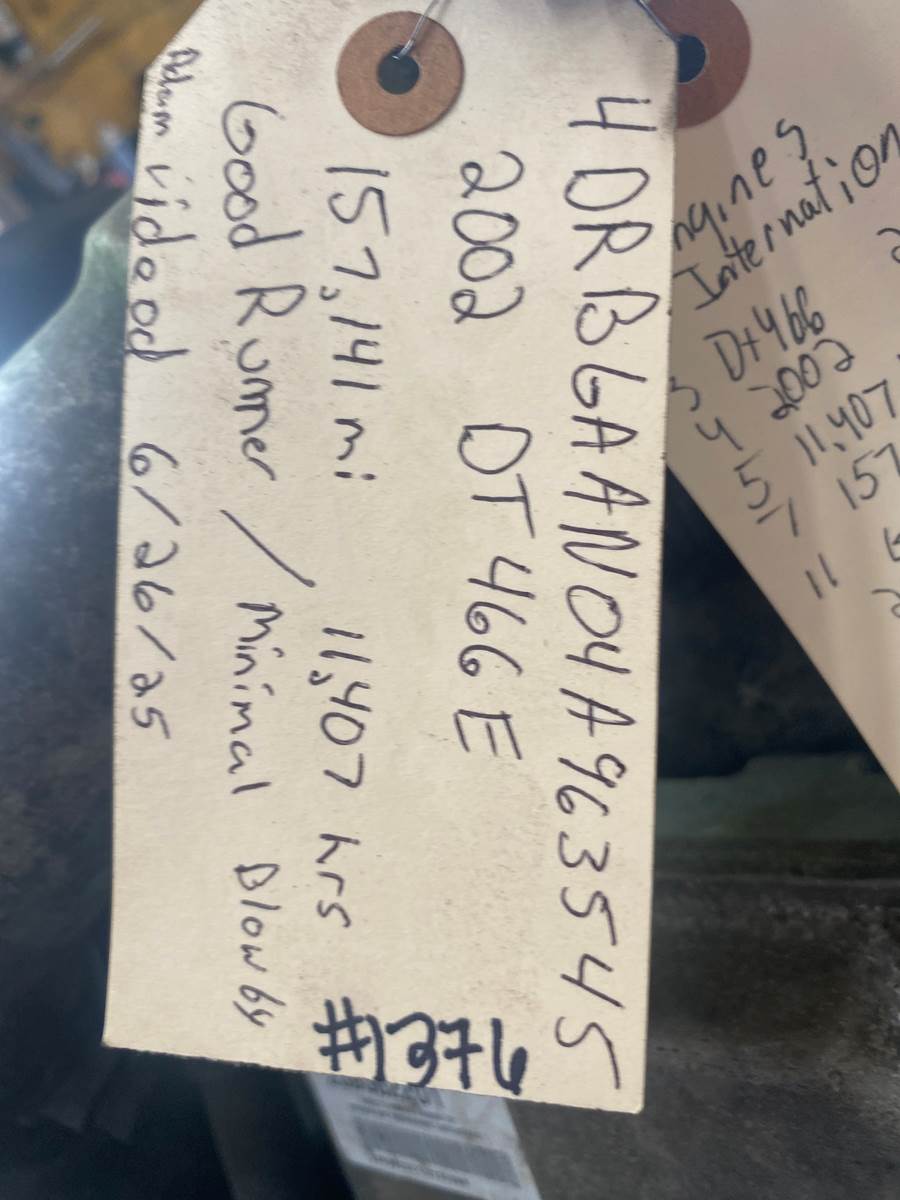 4DRBGAAN04A963545
2002 DT466E
157,141 mi 11,407 hrs
Good Runner / Minimal Blowby
Adam vidood 6/26/25
#1376
ngines
Internation
3 Dt466
4 2002
5 11,407
7 157
11